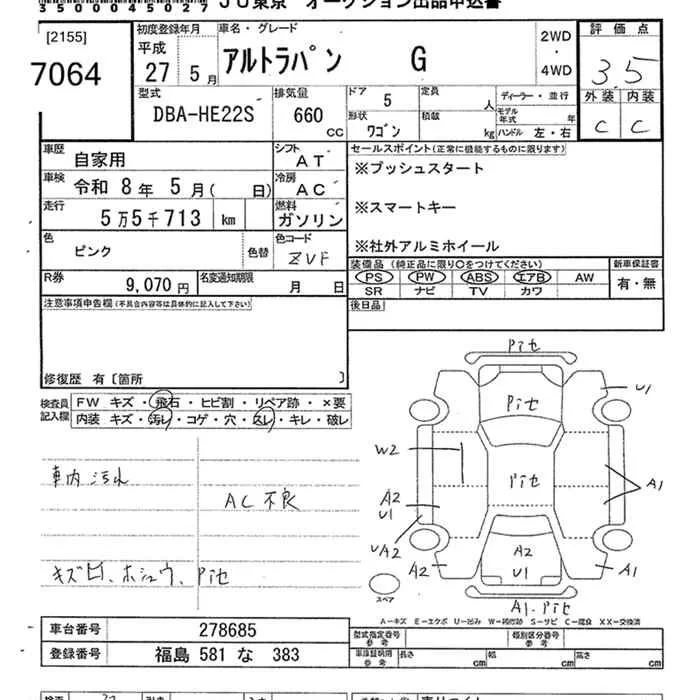 3500045027 JU東京 オークション出品申込書
[2155]
7064
初度登録年月 車名・グレード
平成 27 5月 アルトラパン G
2WD ・ 4WD
評価点 3.5
外装 内装
C C
型式 DBA-HE22S
排気量 660 CC
ドア 5
定員 人
ディーラー・並行
形状 ワゴン
積載 kg
モデル年式 年
ハンドル 左・右
車歴 自家用
シフト AT
車検 令和 8年 5月( 日)
冷房 AC
走行 5万5千713 km
燃料 ガソリン
色 ピンク 色替
色コード ZVF
R券 9,070円
名変通知期限 月 日
セールスポイント(正常に機能するものに限ります)
※プッシュスタート
※スマートキー
※社外アルミホイール
装備品(純正品に限り○をつけてください)
新車保証書
PS PW ABS エアB AW
有・無
SR ナビ TV カワ
後日品
注意事項申告欄(不具合内容等は具体的に記入して下さい)
修復歴 有[箇所 ]
検査員記入欄
FW キズ・飛石・ヒビ割・リペア跡・×要
内装 キズ・汚レ・コゲ・穴・スレ・キレ・破レ
車内汚れ
AC不良
キズ凹、ホシュウ、Pit
Pit
Pit
Pit
U1
W2
A1
A2
U1
UA2
A2
A2
U1
A1
A1.Pit
スペア
A-キズ E-エクボ U-凹み W-補修跡 S-サビ C-腐食 XX-交換済
車台番号 278685
登録番号 福島 581 な 383
型式指定番号 参考
類別区分番号 参考
車庫証明用 参考
長さ cm 幅 cm 高さ cm